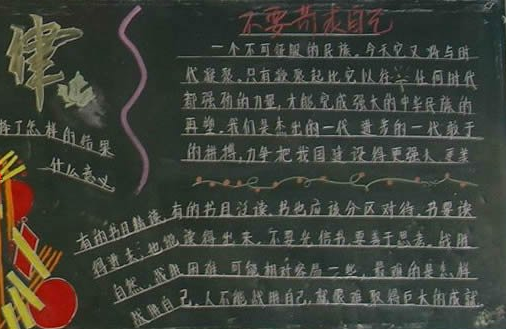 律
不要苛求自己
一个不可征服的民族。今天它又将与时
代凝聚。只有凝聚起比它以往任何时代
都强劲的力量,才能完成强大的中华民族的
再塑。我们是杰出的一代 进步的一代敢于
的拼搏,力争把我国建设得更强大更美
择了怎样的结果
什么意义
有的书目精读,有的书目泛读 书也应该分区对待。书要读
得进去,也能读得出来。不要光信书,要善于思考。战胜
自然,战胜困难 可能相对容易一些,最难的是怎样
战胜自己。人不能战胜自己,就很难取得巨大的成就